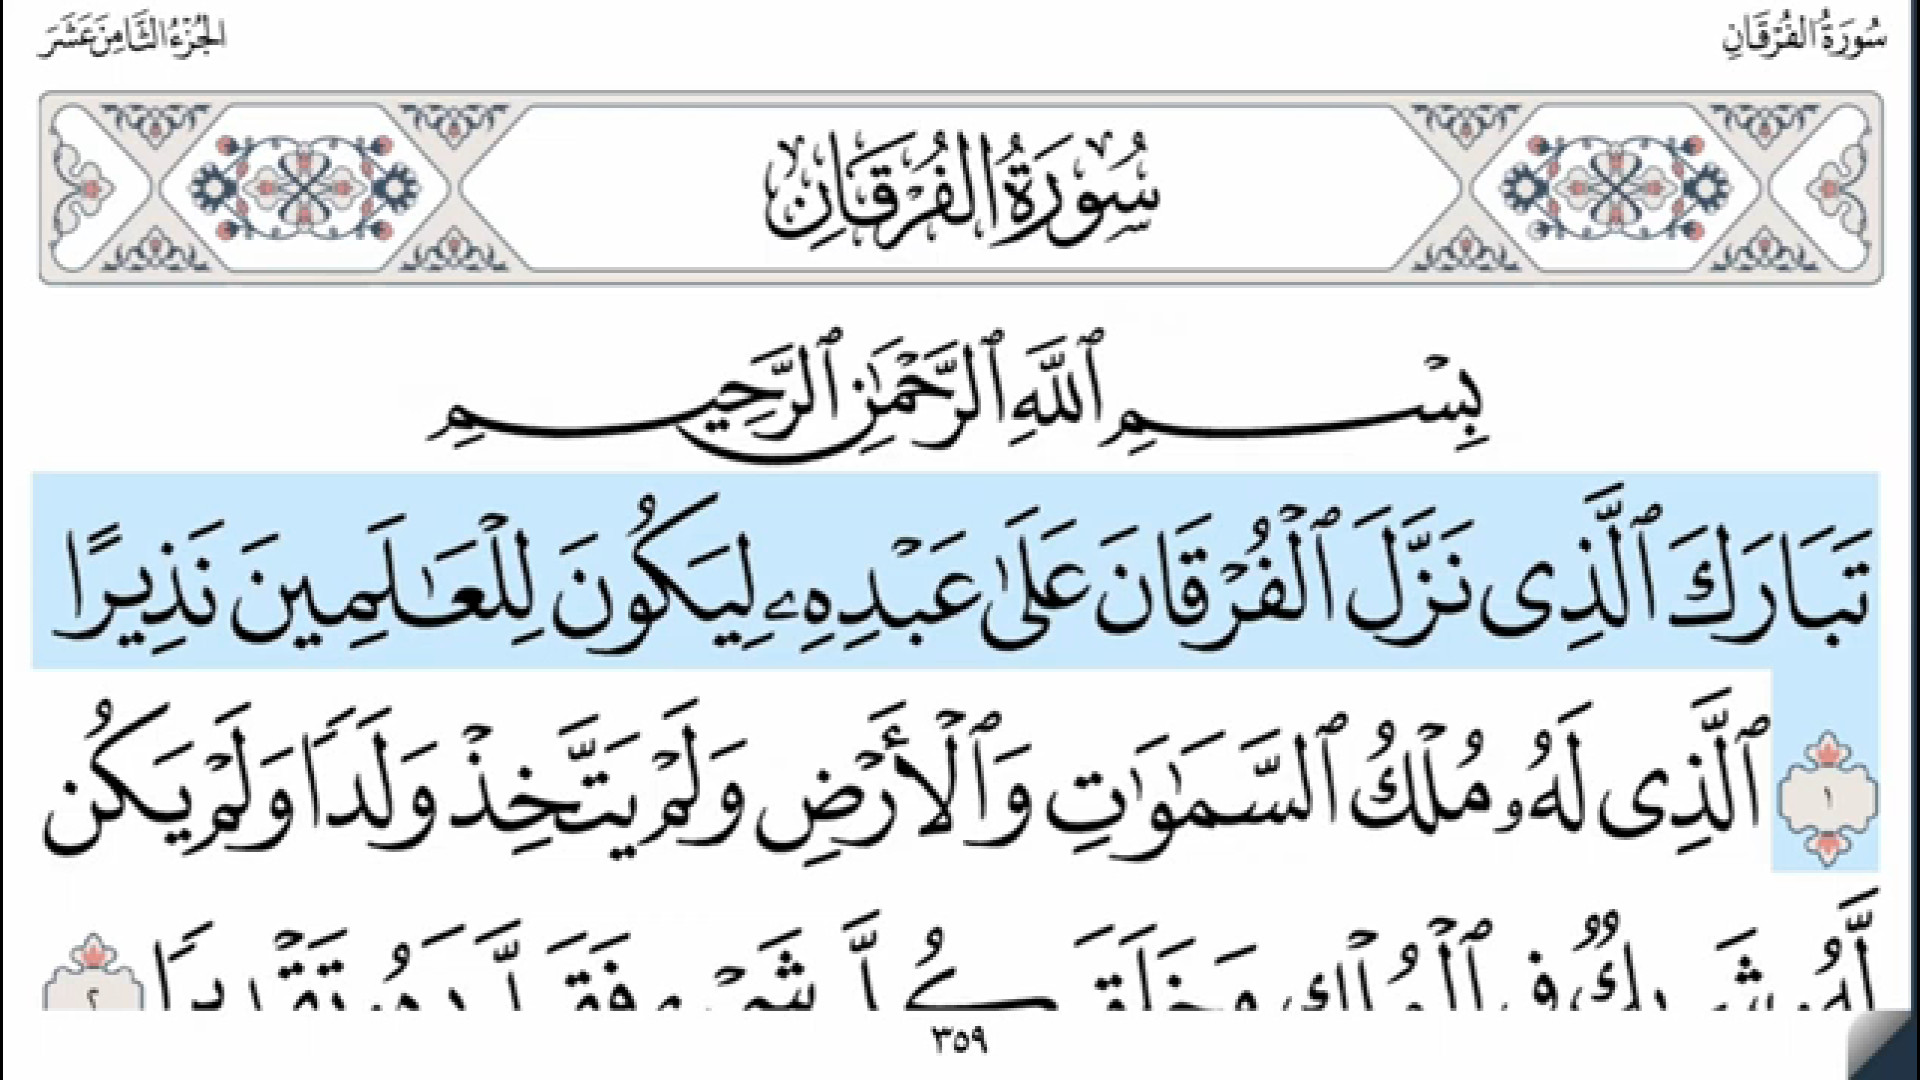 سُورَةُ الفُرْقَانِ
الجُزْءُ الثَّامِنَ عَشَرَ
سُورَةُ الفُرْقَانِ
بِسْمِ ٱللَّهِ ٱلرَّحْمَٰنِ ٱلرَّحِيمِ
تَبَارَكَ ٱلَّذِى نَزَّلَ ٱلْفُرْقَانَ عَلَىٰ عَبْدِهِۦ لِيَكُونَ لِلْعَٰلَمِينَ نَذِيرًا
١ ٱلَّذِى لَهُۥ مُلْكُ ٱلسَّمَٰوَٰتِ وَٱلْأَرْضِ وَلَمْ يَتَّخِذْ وَلَدًا وَلَمْ يَكُن
لَّهُۥ شَرِيكٌ فِى ٱلْمُلْكِ وَخَلَقَ كُلَّ شَىْءٍ فَقَدَّرَهُۥ تَقْدِيرًا ٢
٣٥٩